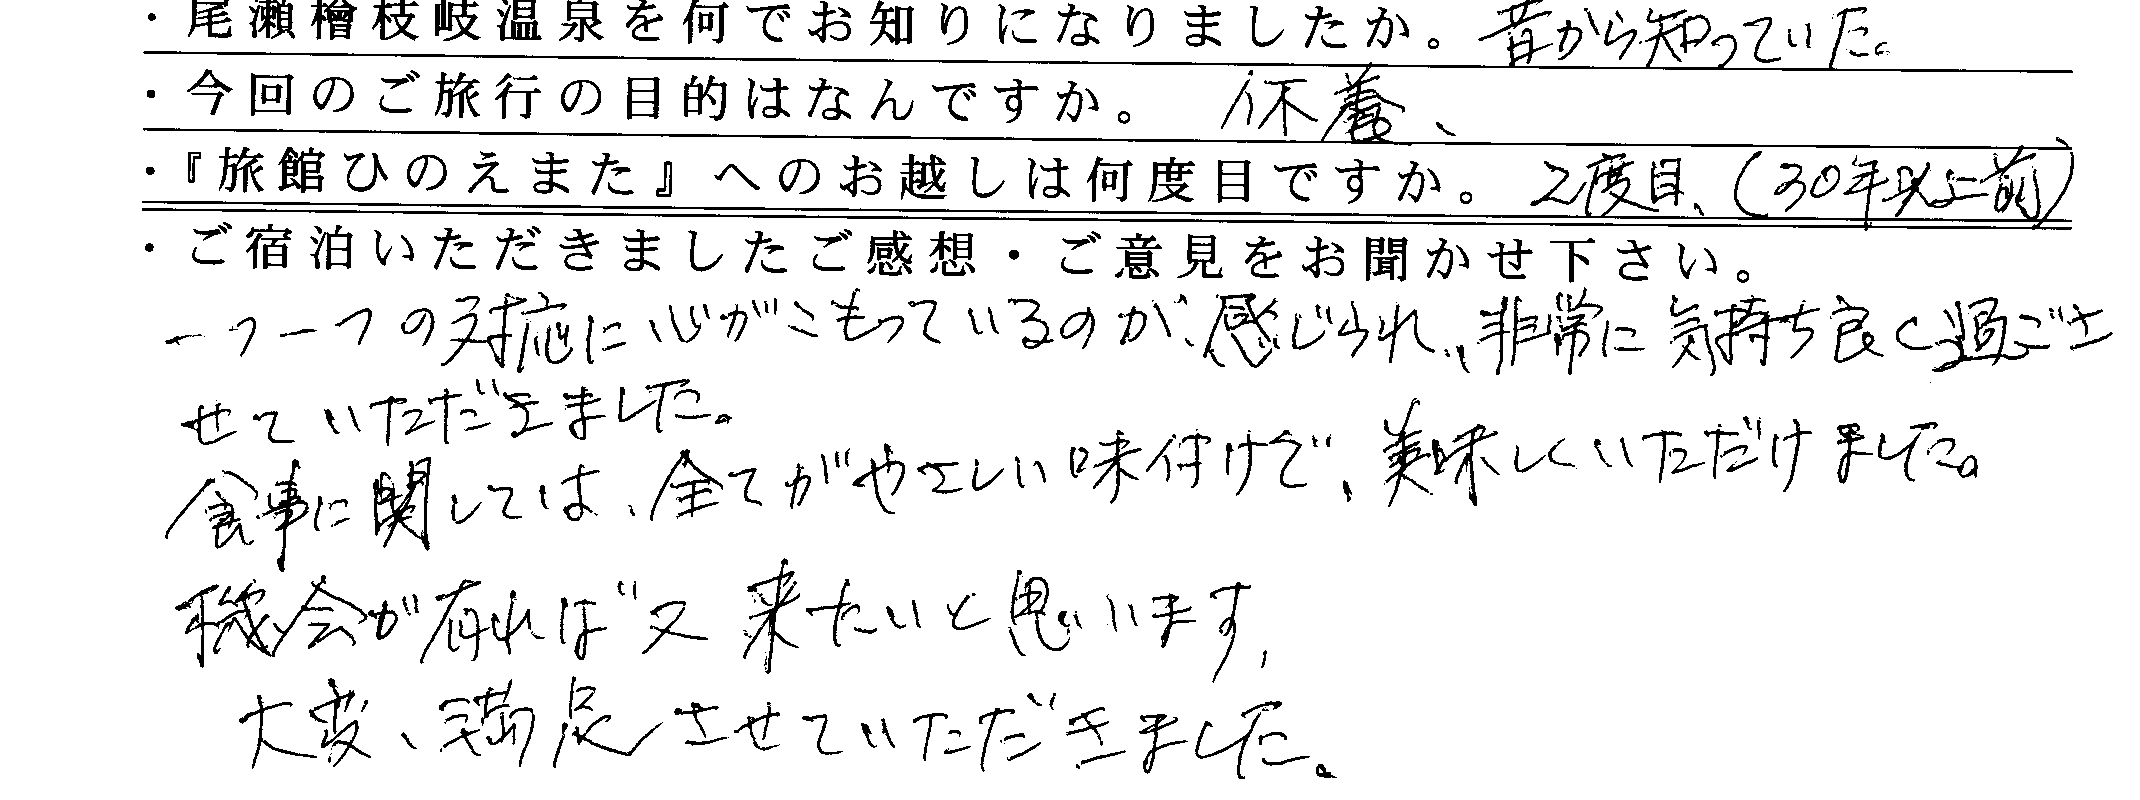 ・尾瀬檜枝岐温泉を何でお知りになりましたか。昔から知っていた。
・今回のご旅行の目的はなんですか。 休養、
・『旅館ひのえまた』へのお越しは何度目ですか。2度目、(30年以上前)
・ご宿泊いただきましたご感想・ご意見をお聞かせ下さい。
一つ一つの対応に心がこもっているのが、感じられ、非常に気持ち良く過ごさ
せていただきました。
食事に関しては、全てがやさしい味付けで、美味しくいただけました。
機会が有れば又来たいと思います、
大変、満足させていただきました。